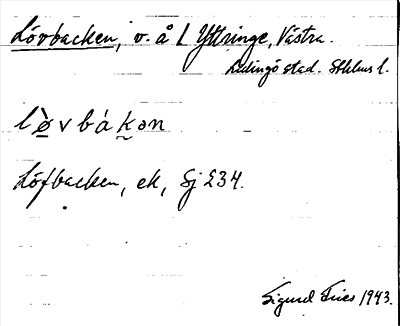 Lövbacken, v. å L Yttringe, Västra.
Lidingö stad. Sthlms l.
lø̀vbákən
Löfbacken, ek, Sj 234.
Sigurd Fries 1943.